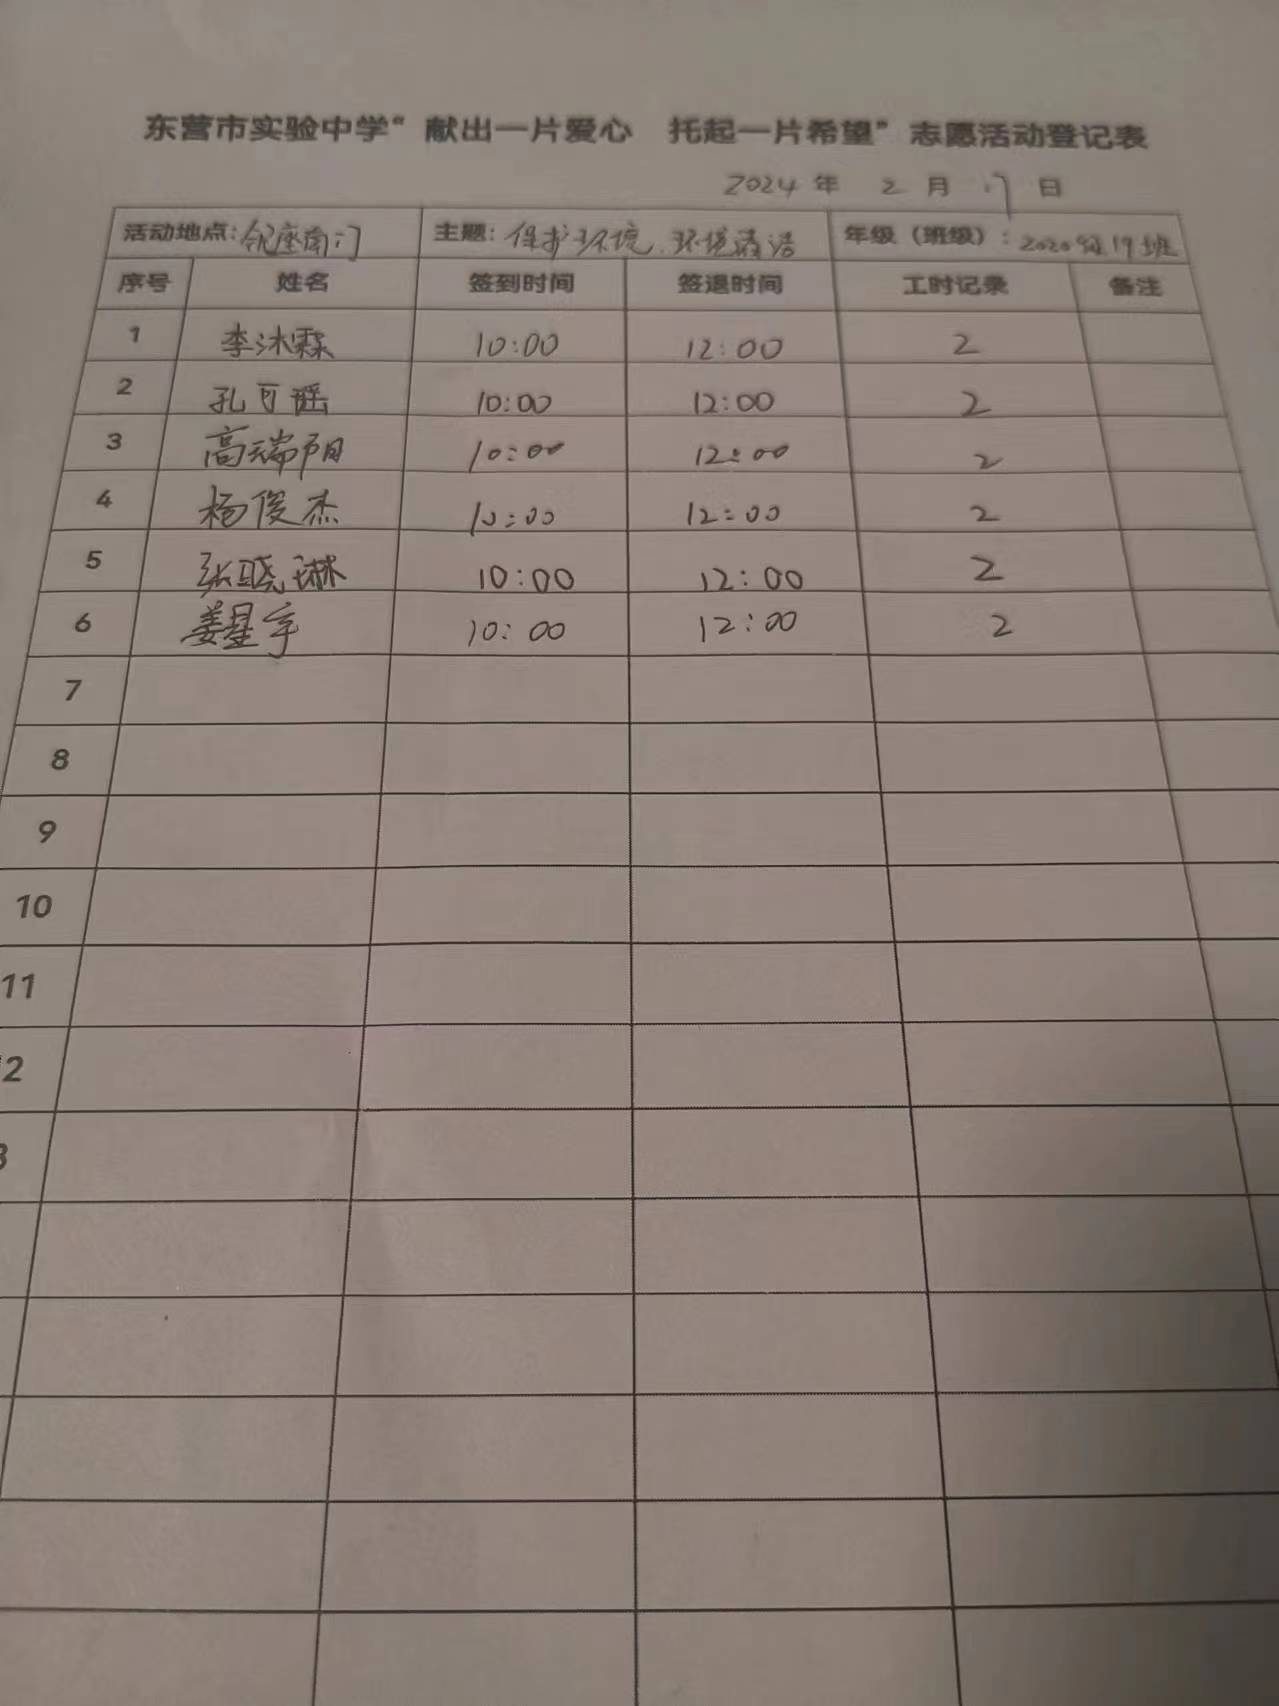 东营市实验中学“献出一片爱心 托起一片希望”志愿活动登记表
2024 年 2 月 17 日
活动地点: 邻座南门 主题: 保护环境、环境清洁 年级(班级): 2020级19班
序号 姓名 签到时间 签退时间 工时记录 备注
1 李沐霖 10:00 12:00 2
2 孔可瑶 10:00 12:00 2
3 高瑞阳 10:00 12:00 2
4 杨俊杰 10:00 12:00 2
5 张晓琳 10:00 12:00 2
6 姜星宇 10:00 12:00 2
7
8
9
10
11
2
3